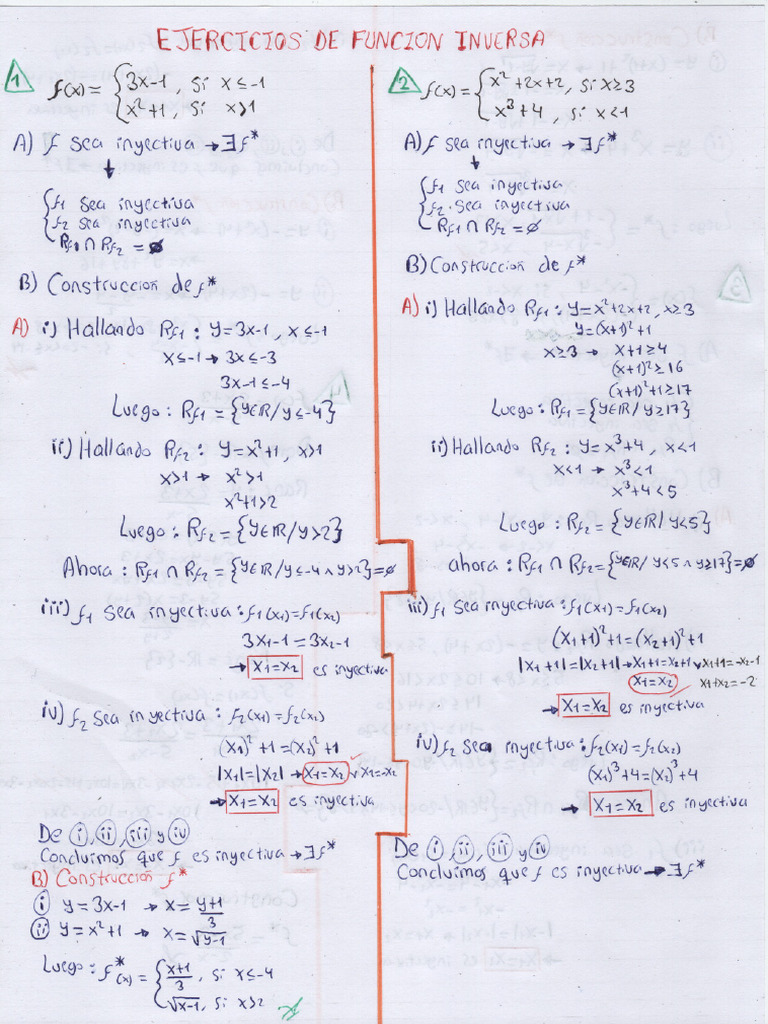 EJERCICIOS DE FUNCION INVERSA
1 f(x) = { 3x-1, si x≤-1
x²+1, si x>1
A) f sea inyectiva → ∃f*
↓
{ f1 sea inyectiva
f2 sea inyectiva
Rf1 ∩ Rf2 = ∅
B) Construccion de f*
A) i) Hallando Rf1 : y=3x-1, x≤-1
x≤-1 → 3x≤-3
3x-1≤-4
Luego : Rf1 = {y∈R/y≤-4}
ii) Hallando Rf2 : y=x²+1, x>1
x>1 → x²>1
x²+1>2
Luego : Rf2 = {y∈R/y>2}
Ahora : Rf1 ∩ Rf2 = {y∈R/y≤-4 ∧ y>2} = ∅
iii) f1 sea inyectiva : f1(x1)=f1(x2)
3x1-1=3x2-1
→ x1=x2 es inyectiva
iv) f2 sea inyectiva : f2(x1)=f2(x2)
(x1)²+1=(x2)²+1
|x1|=|x2| → x1=x2 ∨ x1=-x2
→ x1=x2 es inyectiva
De i, ii, iii y iv
Concluimos que f es inyectiva → ∃f*
B) Construcción f*
i y=3x-1 → x= y+1/3
ii y=x²+1 → x=√y-1
Luego : f*(x) = { x+1/3, si x≤-4
√x-1, si x>2
2 f(x) = { x²+2x+2, si x≥3
x³+4, si x<1
A) f sea inyectiva → ∃f*
↓
{ f1 sea inyectiva
f2 sea inyectiva
Rf1 ∩ Rf2 = ∅
B) Construccion de f*
A) i) Hallando Rf1 : y=x²+2x+2, x≥3
y=(x+1)²+1
x≥3 → x+1≥4
(x+1)²≥16
(x+1)²+1≥17
Luego : Rf1 = {y∈R/y≥17}
ii) Hallando Rf2 : y=x³+4, x<1
x<1 → x³<1
x³+4<5
Luego : Rf2 = {y∈R/y<5}
ahora : Rf1 ∩ Rf2 = {y∈R/y<5 ∧ y≥17} = ∅
iii) f1 sea inyectiva : f1(x1)=f1(x2)
(x1+1)²+1=(x2+1)²+1
|x1+1|=|x2+1| → x1+1=x2+1 ∨ x1+1=-x2-1
x1=x2 x1+x2=-2
→ x1=x2 es inyectiva
iv) f2 sea inyectiva : f2(x1)=f2(x2)
(x1)³+4=(x2)³+4
→ x1=x2 es inyectiva
De i, ii, iii y iv
Concluimos que f es inyectiva → ∃f*